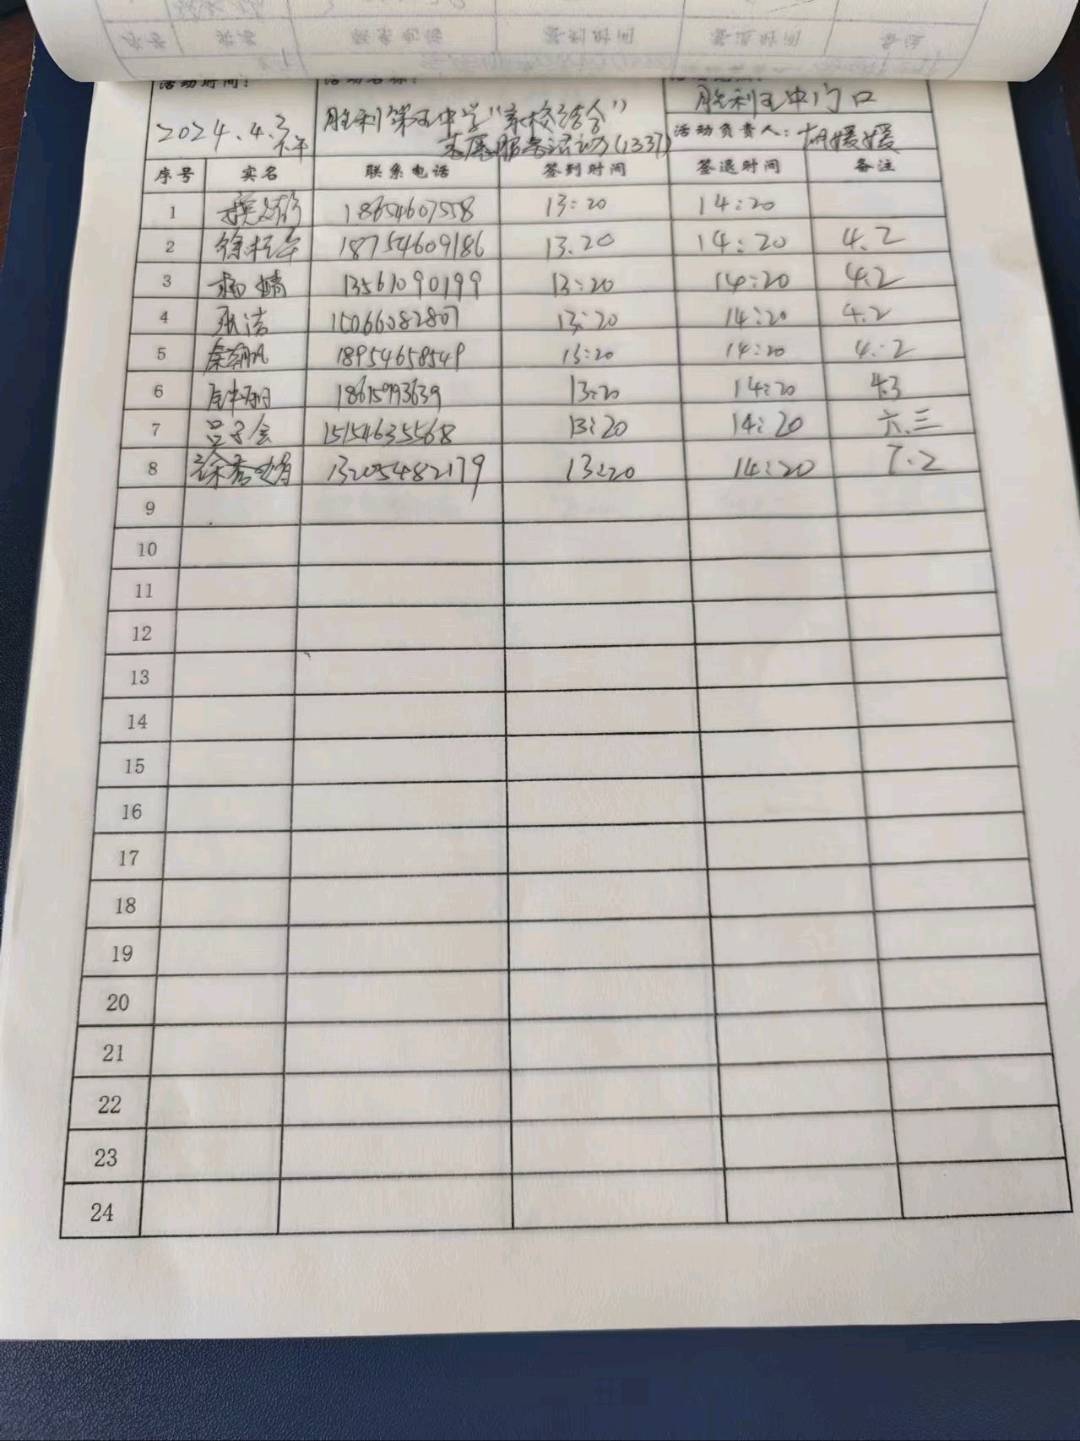 活动时间：
2024.4.3 下午
活动名称：
胜利第五中学"家校结合"
志愿服务活动(1337)
胜利五中门口
活动负责人：胡媛媛
序号 实名 联系电话 签到时间 签退时间 备注
1 18654607558 13:20 14:20
2 18754609186 13.20 14:20 4.2
3 杨婧 13561090199 13:20 14:20 4.2
4 张洁 15066082807 13:20 14:20 4.2
5 18954658549 13:20 14:20 4.2
6 18615993639 13:20 14:20 4.3
7 吕子会 15154635568 13:20 14:20 六.三
8 徐秀娟 13205482179 13:20 14:20 7.2
9
10
11
12
13
14
15
16
17
18
19
20
21
22
23
24